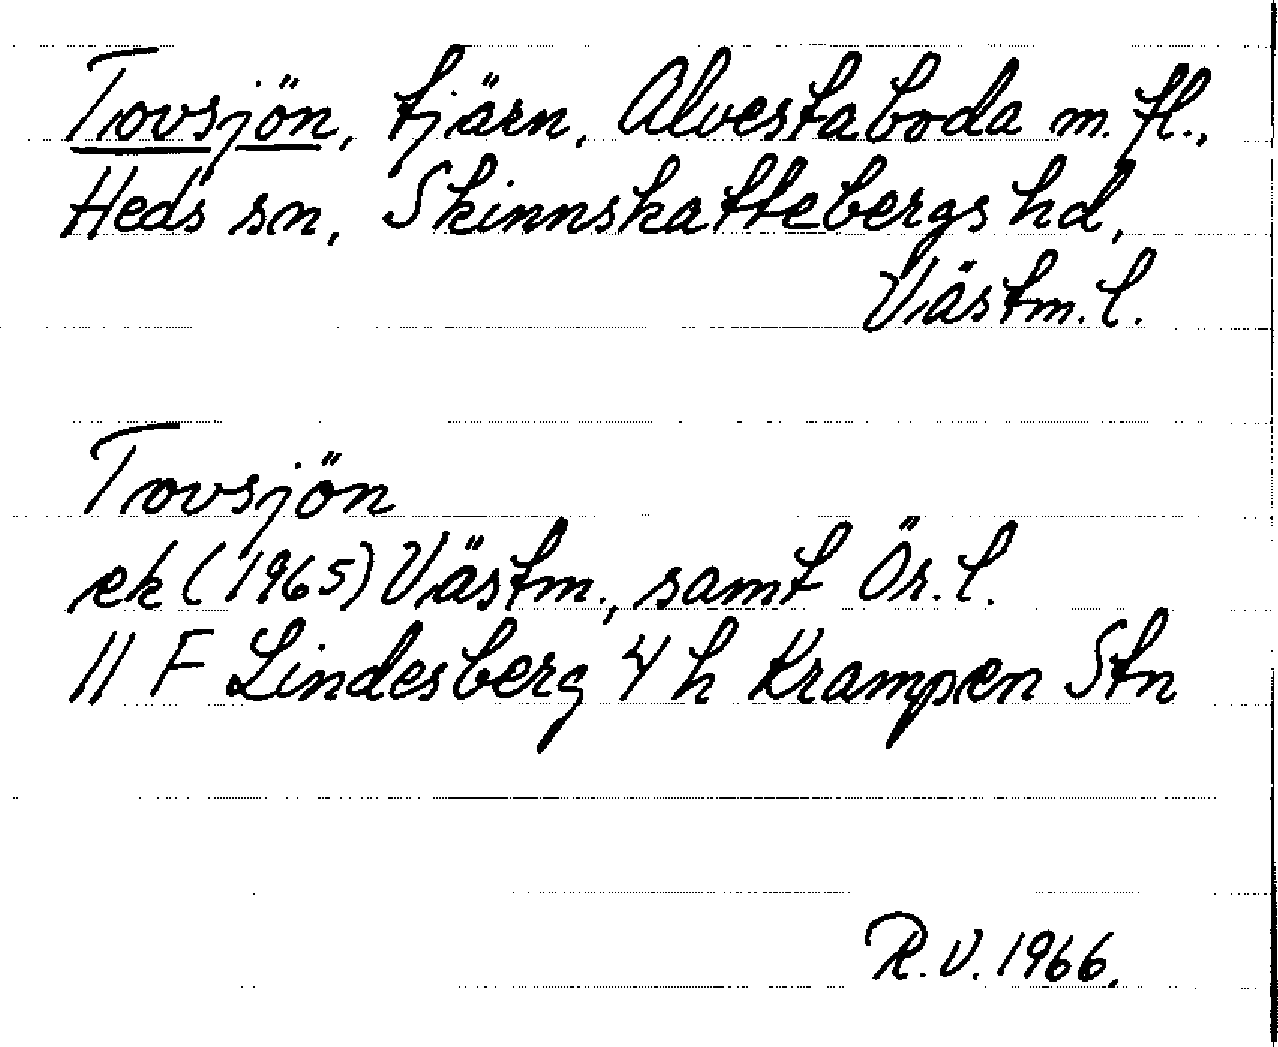 Trovsjön, tjärn, Alvestaboda m. fl.,
Heds sn, Skinnskattebergs hd,
Västm. l.
Trovsjön
ek (1965) Västm., samt Ör. l.
11 F Lindesberg 4 h Krampen Stn
R.V. 1966.